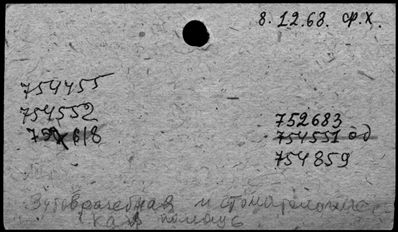 8.12.68. ф.х.
754455
754552
618
752683
754551 од
754859
Зубоврачебная и стоматологич
помощь